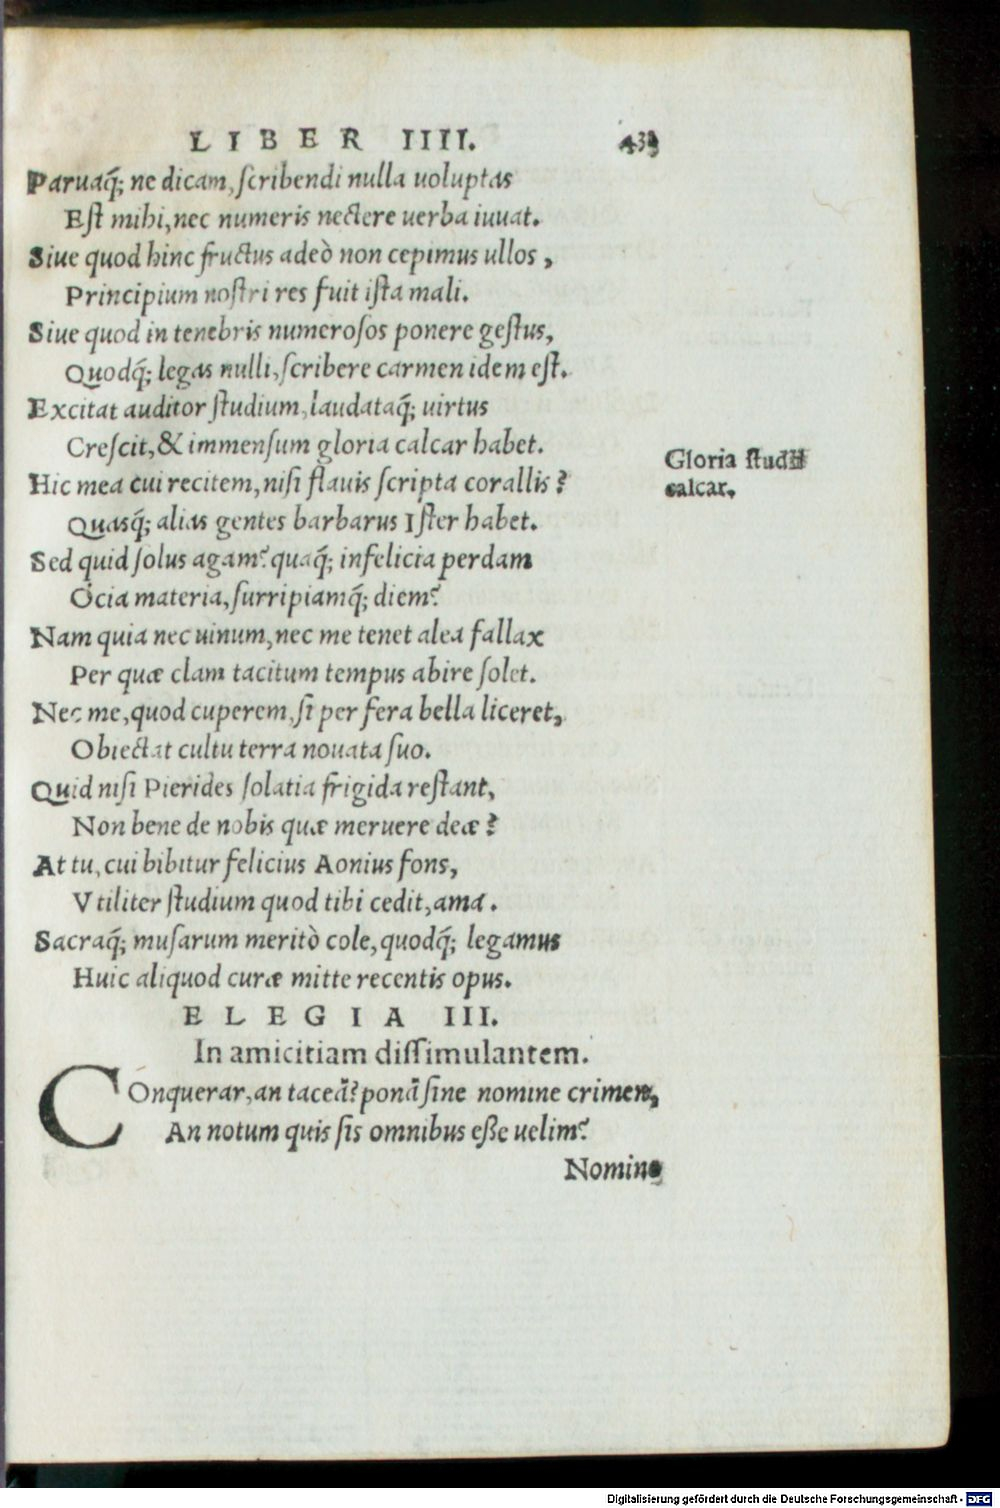 LIBER IIII.
Paruaq́; ne dicam, ſcribendi nulla uoluptas
Eſt mihi, nec numeris nectere uerba iuuat.
Siue quod hinc fructus adeò non cepimus ullos,
Principium noſtri res fuit iſta mali.
Siue quod in tenebris numeroſos ponere geſtus,
Quodq́; legas nulli, ſcribere carmen idem eſt.
Excitat auditor ſtudium, laudataq́; uirtus
Creſcit, & immenſum gloria calcar habet.
Gloria ſtudii
calcar.
Hic mea cui recitem, niſi flauis ſcripta corallis?
Quasq́; alias gentes barbarus Iſter habet.
Sed quid ſolus agam? quaq́; infelicia perdam
Ocia materia, ſurripiamq́; diem?
Nam quia nec uinum, nec me tenet alea fallax
Per quæ clam tacitum tempus abire ſolet.
Nec me, quod cuperem, ſi per fera bella liceret,
Obiectat cultu terra nouata ſuo.
Quid niſi Pierides ſolatia frigida reſtant,
Non bene de nobis quæ meruere deæ?
At tu, cui bibitur felicius Aonius fons,
Vtiliter ſtudium quod tibi cedit, ama.
Sacraq́; muſarum meritò cole, quodq́; legamus
Huic aliquod curæ mitte recentis opus.
ELEGIA III.
In amicitiam diſſimulantem.
COnquerar, an taceã? ponã ſine nomine crimen,
An notum quis ſis omnibus eße uelim?
Nomine
Digitalisierung gefördert durch die Deutsche Forschungsgemeinschaft - DFG